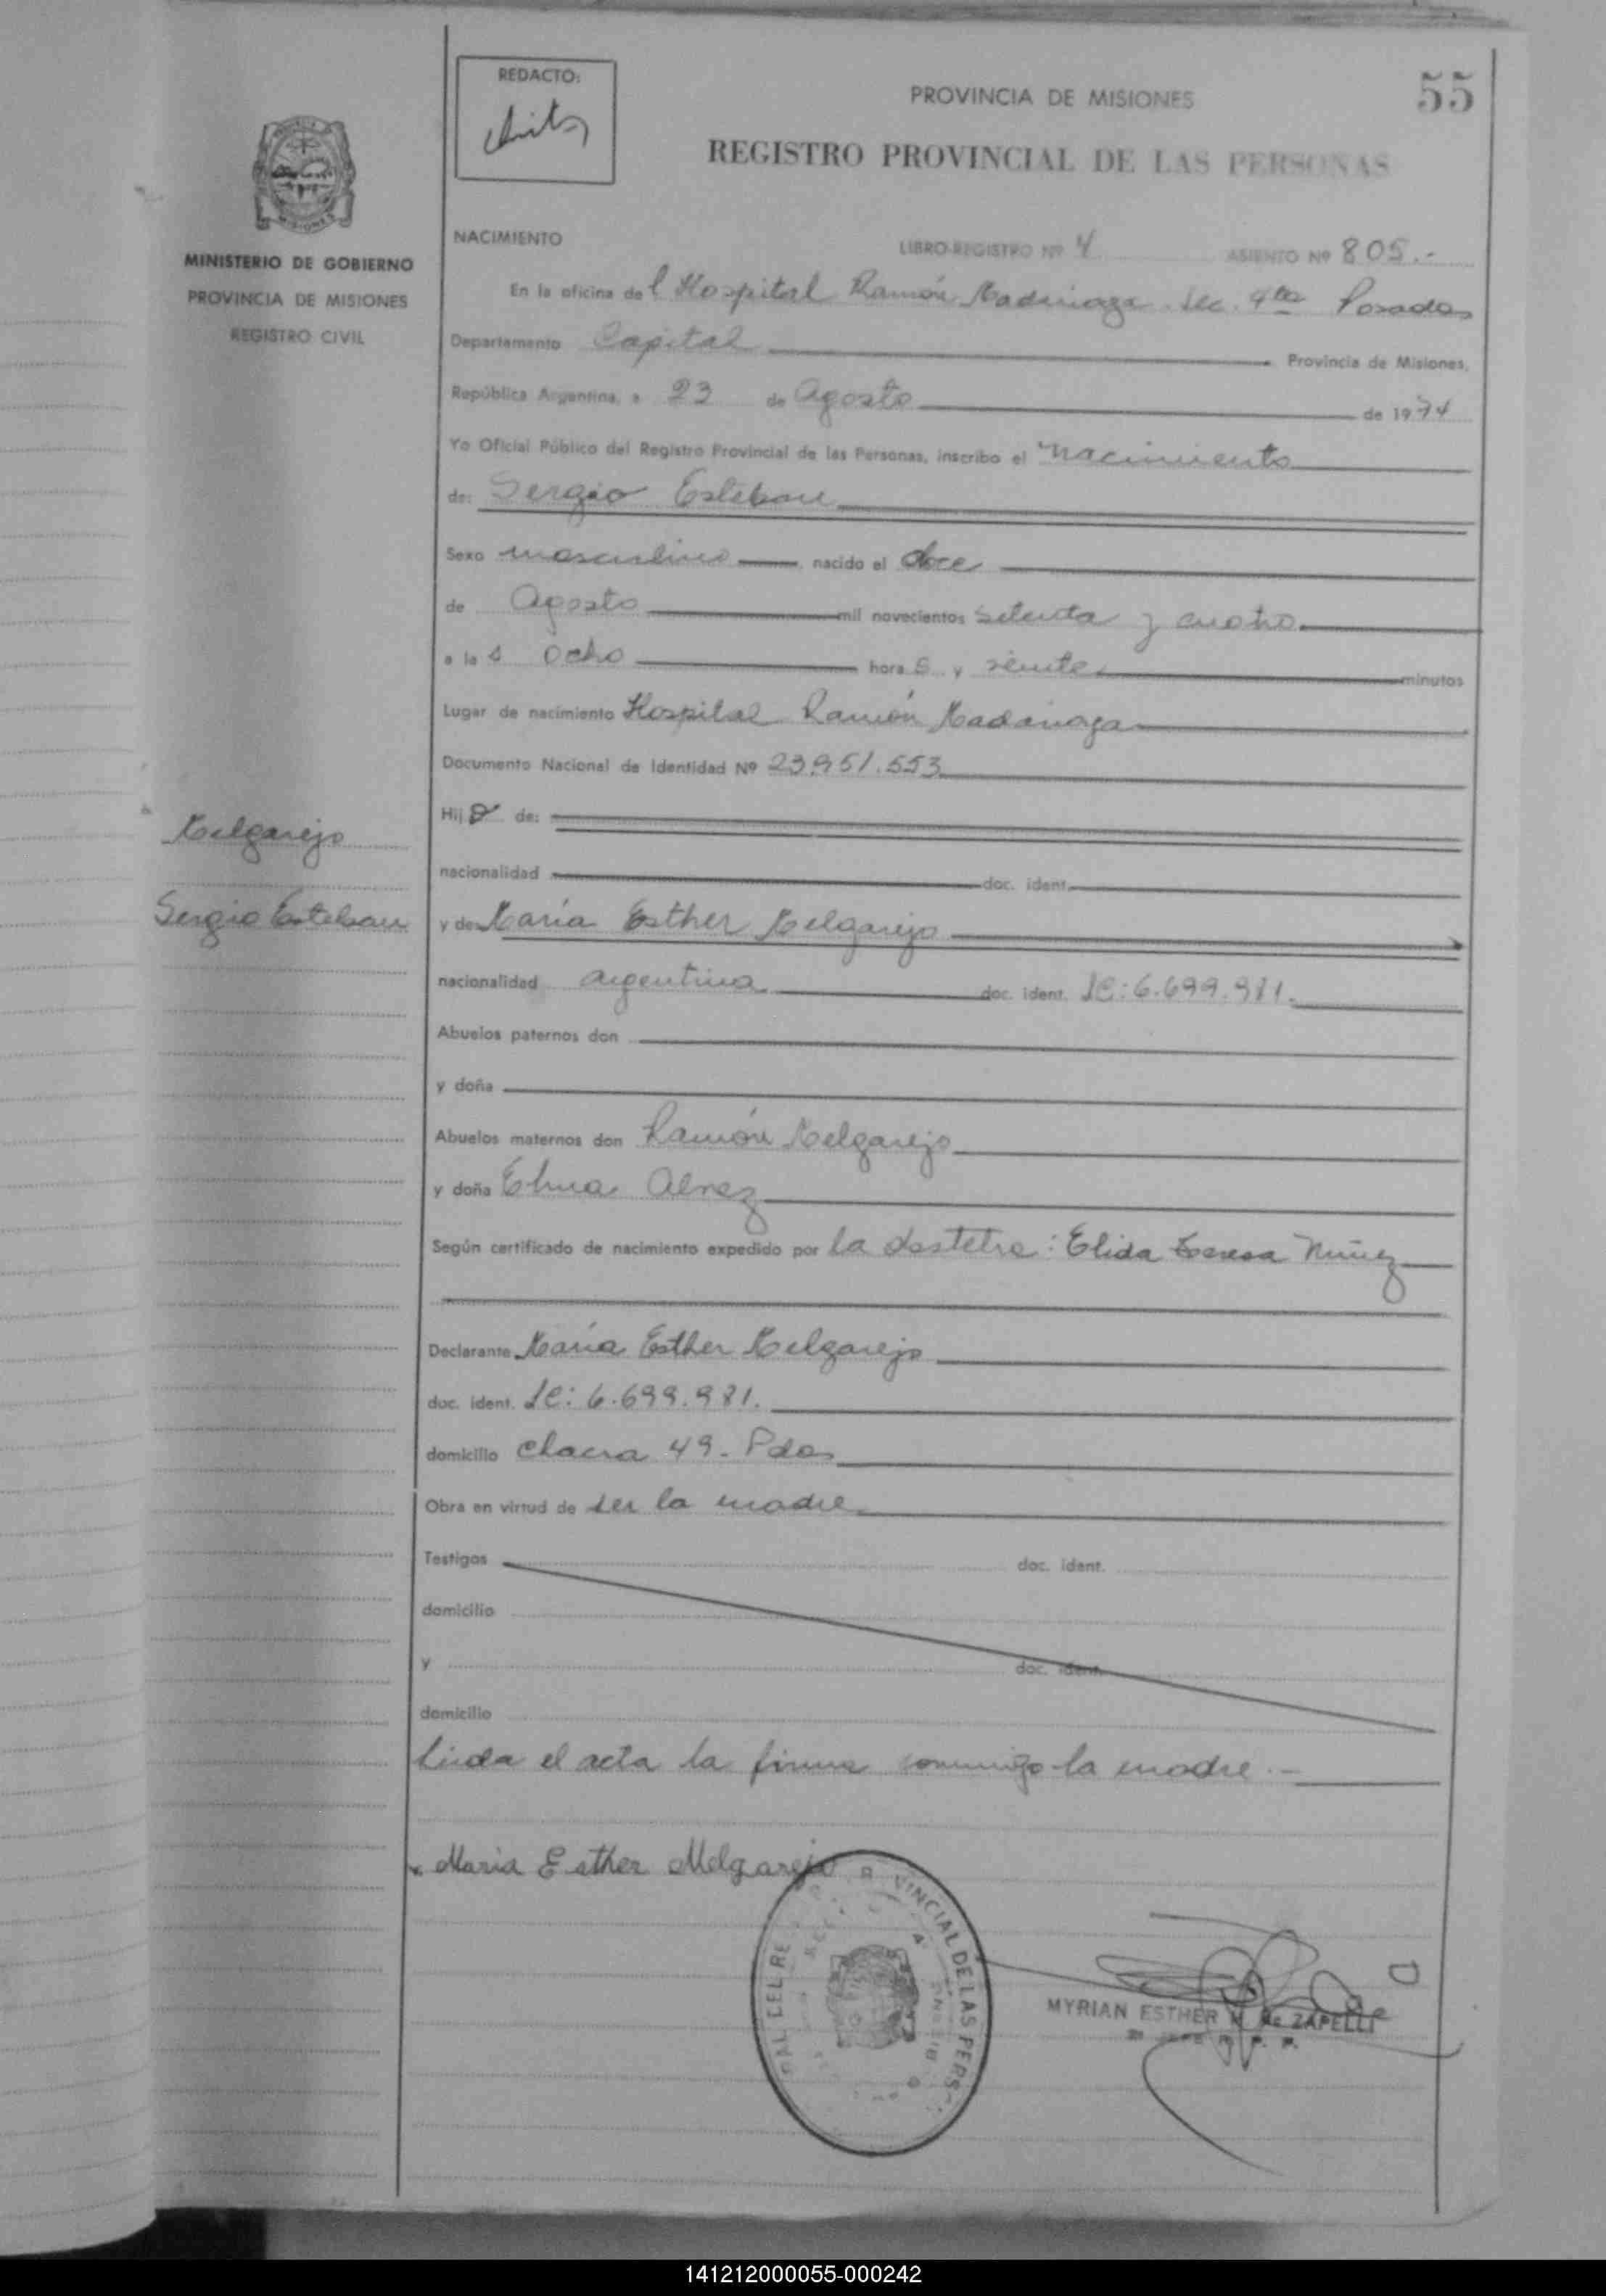 REDACTO:
PROVINCIA DE MISIONES
55
REGISTRO PROVINCIAL DE LAS PERSONAS
MISIONES
MINISTERIO DE GOBIERNO
PROVINCIA DE MISIONES
REGISTRO CIVIL
NACIMIENTO LIBRO-REGISTRO Nº 4 ASIENTO Nº 805.-
En la oficina del Hospital Ramón Madariaga Sec. 4ta Posadas
Departamento Capital Provincia de Misiones,
República Argentina, a 23 de Agosto de 1974
Yo Oficial Público del Registro Provincial de las Personas, inscribo el nacimiento
de: Sergio Esteban
Sexo masculino nacido el doce
de Agosto mil novecientos setenta y cuatro
a las ocho horas y veinte minutos
Lugar de nacimiento Hospital Ramón Madariaga
Documento Nacional de Identidad Nº 23.951.553
Hijo de:
nacionalidad doc. ident.
Melgarejo
Sergio Esteban
y de María Esther Melgarejo
nacionalidad argentina doc. ident. LC: 6.699.981.
Abuelos paternos don
y doña
Abuelos maternos don Ramón Melgarejo
y doña Elma
Según certificado de nacimiento expedido por la : Elida Teresa Núñez
Declarante María Esther Melgarejo
doc. ident. LC: 6.699.981.
domicilio chacra 49 - Pdas
Obra en virtud de ser la madre
Testigos doc. ident.
domicilio
y doc. ident.
domicilio
Leida el acta la firma conmigo la madre.-
Maria Esther Melgarejo
VINCIAL DE LAS PERS
MYRIAN ESTHER M. de ZAPELLI
141212000055-000242